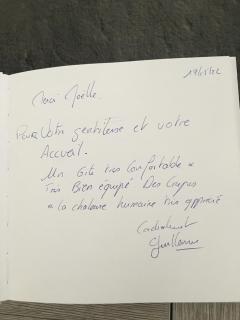 Merci Joëlle.
Pour Votre gentillesse et votre
Accueil.
Un Gite très Confortable
Très Bien équipé
la chaleur humaine très apprécié
Cordialement
Guillaume